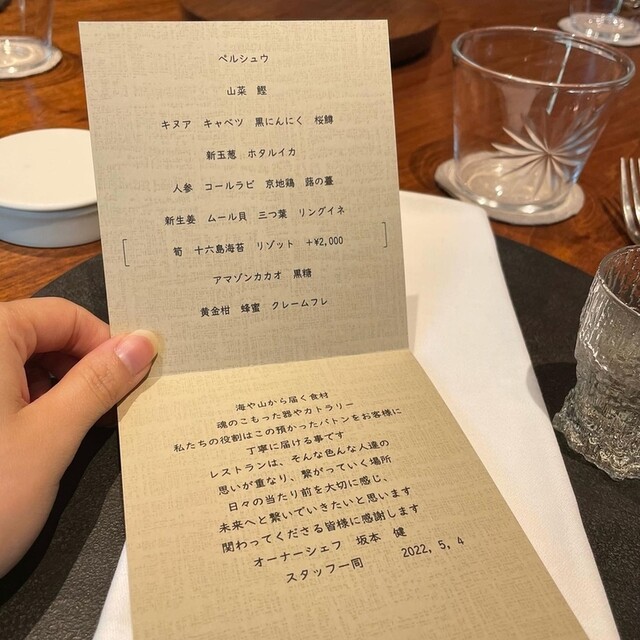 ペルシュウ
山菜　鰹
キヌア　キャベツ　黒にんにく　桜鱒
新玉葱　ホタルイカ
人参　コールラビ　京地鶏　蕗の薹
新生姜　ムール貝　三つ葉　リングイネ
[ 筍　十六島海苔　リゾット　+¥2,000 ]
アマゾンカカオ　黒糖
黄金柑　蜂蜜　クレームフレ
海や山から届く食材
魂のこもった器やカトラリー
私たちの役割はこの預かったバトンをお客様に
丁寧に届ける事です
レストランは、そんな色んな人達の
思いが重なり、繋がっていく場所
日々の当たり前を大切に感じ、
未来へと繋いでいきたいと思います
関わってくださる皆様に感謝します
オーナーシェフ　坂本　健
スタッフ一同　2022, 5, 4